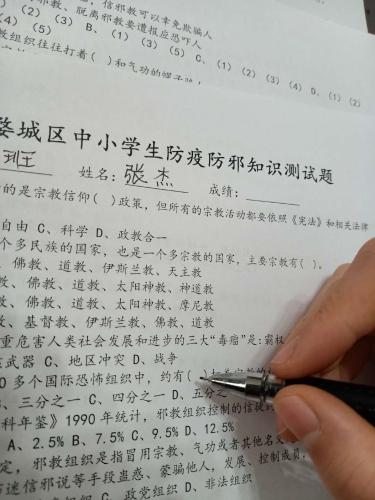 信邪教可以幸免欺骗人
邪教、脱离邪教要遭报应恐吓人
(2) (3) B、(1) (3) (5) C、(1) (2) (3) (4) D、(1) (2)
(4) (5)
教组织往往打着( )和气功的幌子
婺城区中小学生防疫防邪知识测试题
班 姓名:张杰 成绩:
的是宗教信仰( )政策,但所有的宗教活动都要依照《宪法》和相关法律
自由 C、科学 D、政教合一
个多民族的国家,也是一个多宗教的国家,主要宗教有( )。
、佛教、道教、伊斯兰教、天主教
、佛教、道教、太阳神教、神道教
、佛教、道教、太阳神教、摩尼教
、基督教、伊斯兰教、佛教、道教
重危害人类社会发展和进步的三大"毒瘤"是:霸权
武器 C、地区冲突 D、战争
0 多个国际恐怖组织中,约有( )
、三分之一 C、四分之一 D、五分之
科年鉴》1990 年统计,邪教组织控制的信徒
A、2.5% B、7.5% C、9.5% D、12.5%
定,邪教组织是指冒用宗教、气功或者其他名义
迷信邪说等手段蛊惑、蒙骗他人,发展、控制成员,
组织 C、政党组织 D、非法组织